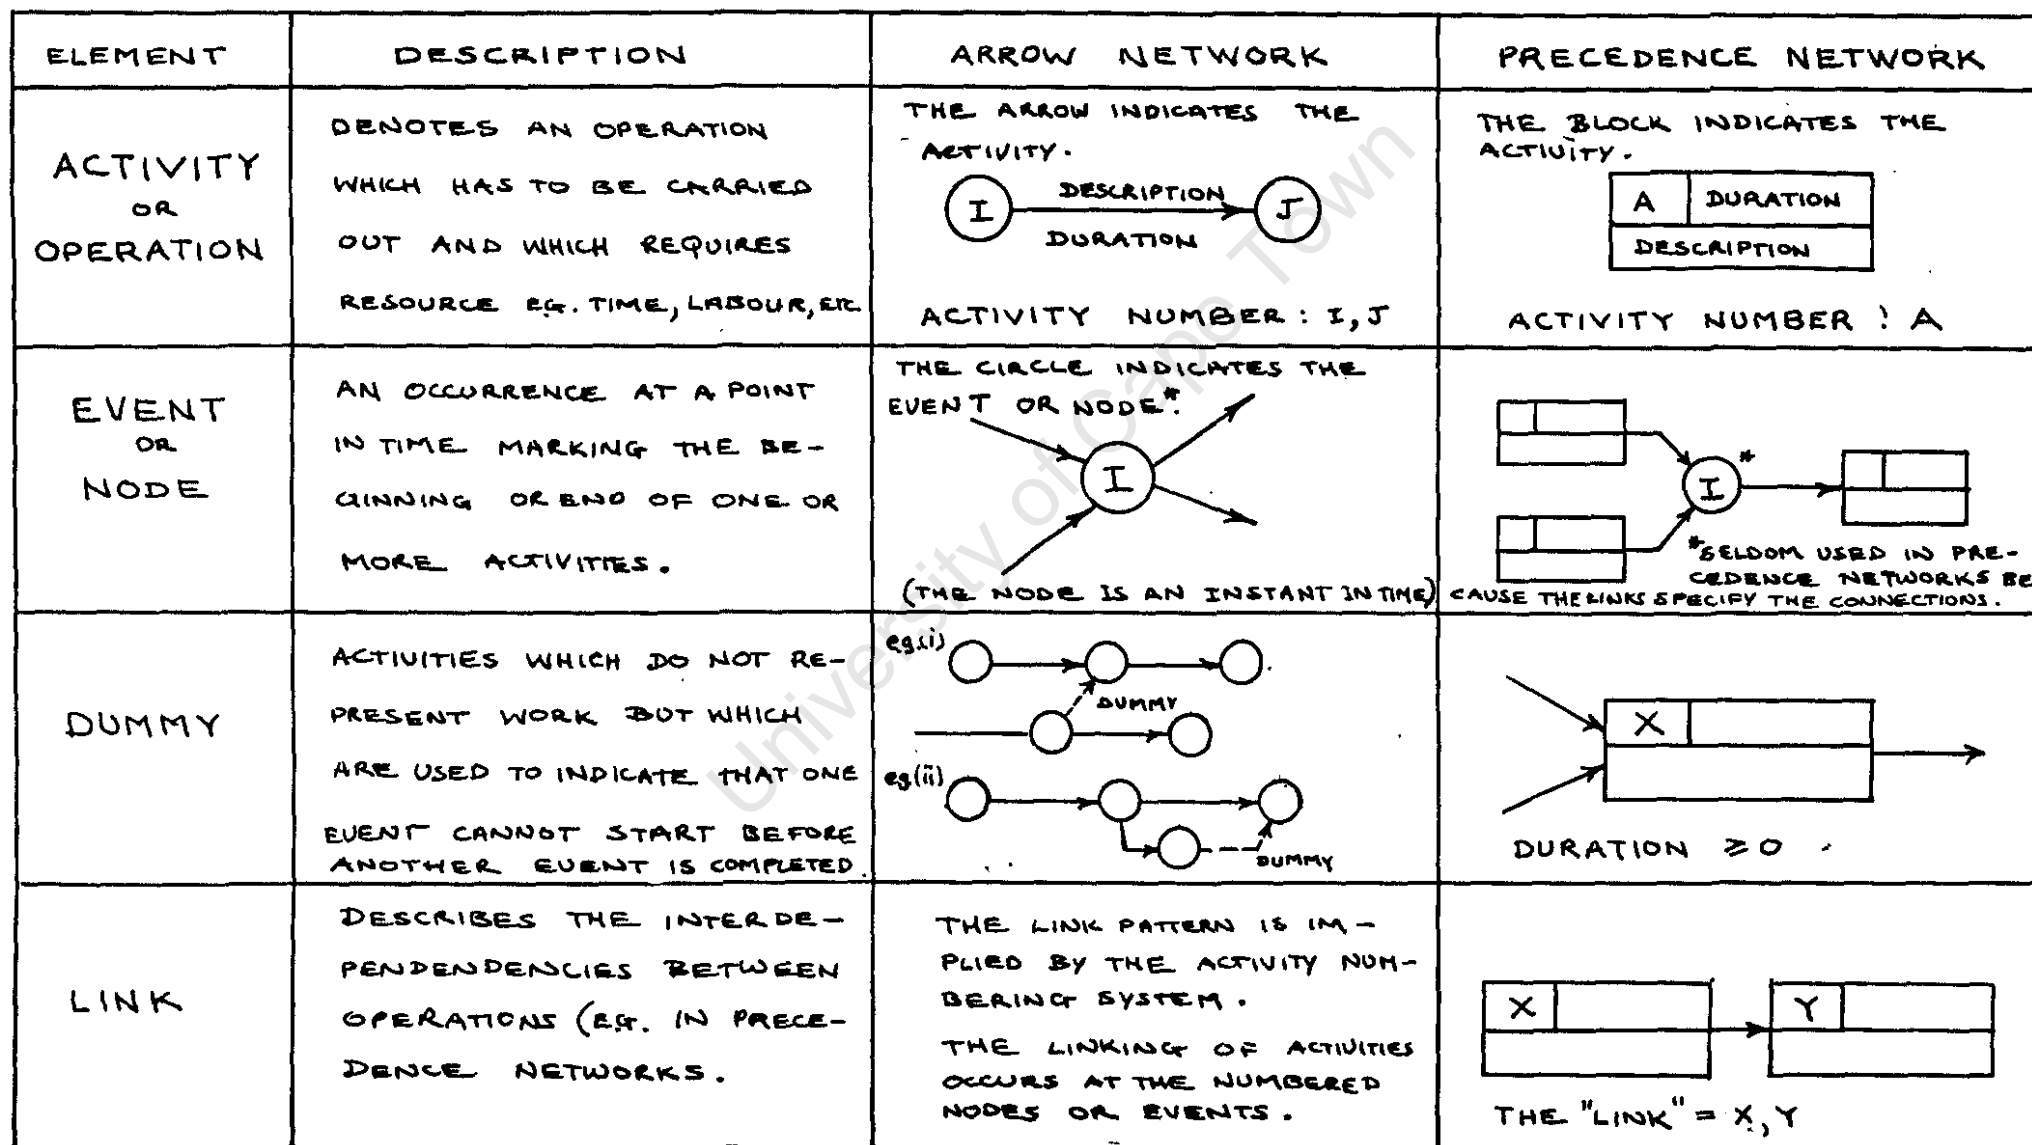 ELEMENT
DESCRIPTION
ARROW NETWORK
PRECEDENCE NETWORK
ACTIVITY
OR
OPERATION
DENOTES AN OPERATION
WHICH HAS TO BE CARRIED
OUT AND WHICH REQUIRES
RESOURCE EG. TIME, LABOUR, ETC
THE ARROW INDICATES THE
ACTIVITY.
I
DESCRIPTION
J
DURATION
ACTIVITY NUMBER : I, J
THE BLOCK INDICATES THE
ACTIVITY.
A
DURATION
DESCRIPTION
ACTIVITY NUMBER : A
EVENT
OR
NODE
AN OCCURRENCE AT A POINT
IN TIME MARKING THE BE-
GINNING OR END OF ONE OR
MORE ACTIVITIES.
THE CIRCLE INDICATES THE
EVENT OR NODE*.
I
(THE NODE IS AN INSTANT IN TIME)
I*
*SELDOM USED IN PRE-
CEDENCE NETWORKS BE
CAUSE THE LINKS SPECIFY THE CONNECTIONS.
DUMMY
ACTIVITIES WHICH DO NOT RE-
PRESENT WORK BUT WHICH
ARE USED TO INDICATE THAT ONE
EVENT CANNOT START BEFORE
ANOTHER EVENT IS COMPLETED.
eg.(i)
DUMMY
eg(ii)
DUMMY
X
DURATION ≥ 0
LINK
DESCRIBES THE INTERDE-
PENDENDENCIES BETWEEN
OPERATIONS (EG. IN PRECE-
DENCE NETWORKS.
THE LINK PATTERN IS IM-
PLIED BY THE ACTIVITY NUM-
BERING SYSTEM.
THE LINKING OF ACTIVITIES
OCCURS AT THE NUMBERED
NODES OR EVENTS.
X
Y
THE "LINK" = X, Y
University of Cape Town